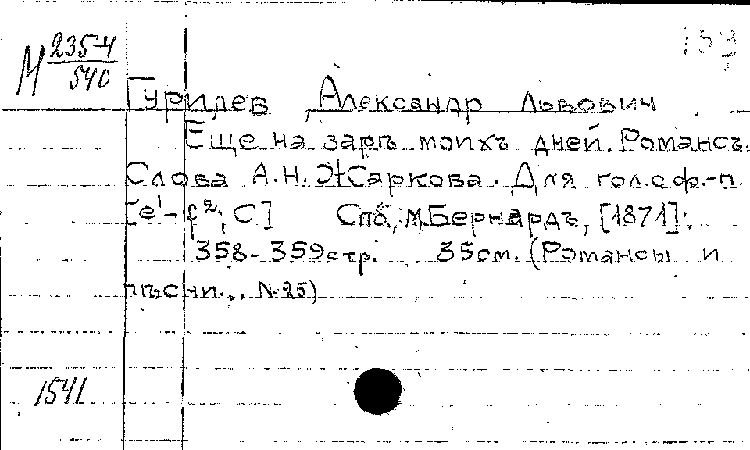 М 235-4
540
Гурилев, Александр Львович
Еще на заръ моихъ дней. Романсъ.
Слова А.Н. Жаркова. Для гол. с ф.-п.
[e¹-f²; C] Спб, М. Бернардъ, [1871].
358-359 стр. 35 см. (Романсы и
пѣсни.., N. 25)
1541